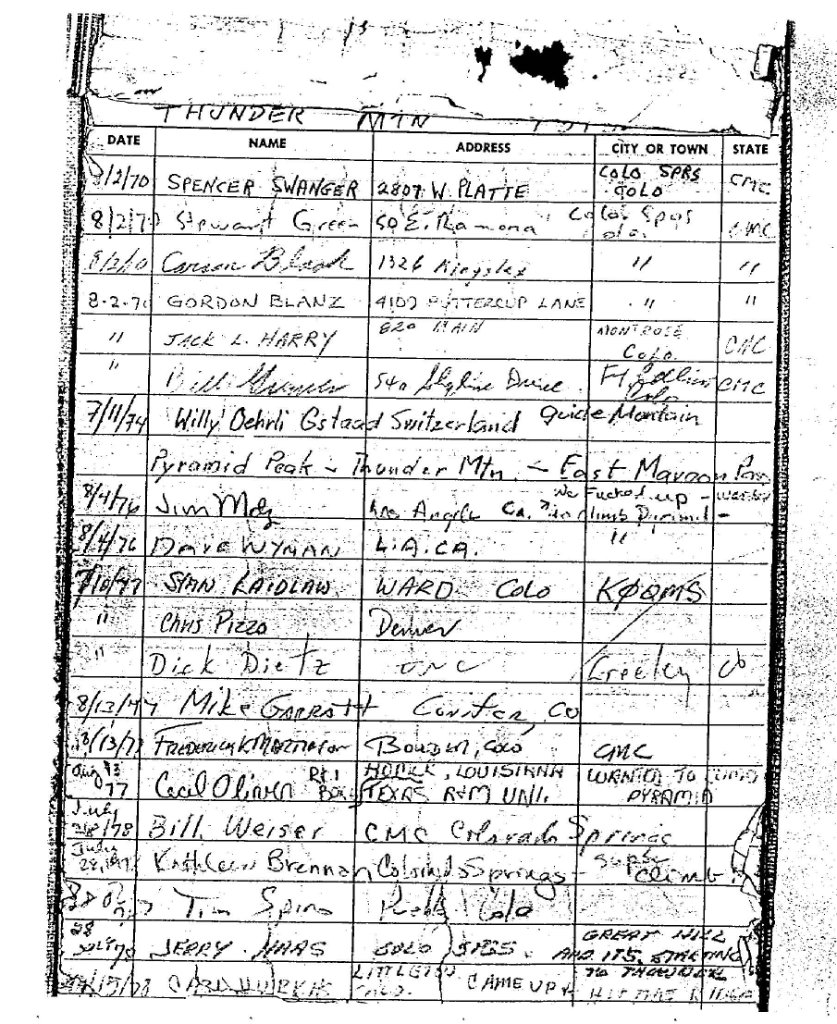 THUNDER MTN
DATE NAME ADDRESS CITY OR TOWN STATE
8/2/70 SPENCER SWANGER 2807 W. PLATTE COLO SPRS COLO CMC
8/2/70 Stewart Green 50 E. Ramona Colo. Spgs Colo. CMC
8/2/70 Carson Black 1326 Kingsley " "
8-2-70 GORDON BLANZ 4107 BUTTERCUP LANE " "
" JACK L. HARRY 620 MAIN MONTROSE COLO. CMC
" Bill 540 Skyline Drive Ft Collins Colo CMC
7/11/74 Willy Oehrli Gstaad Switzerland guide Montain
Pyramid Peak - Thunder Mtn. - East Maroon Pass
8/4/76 Jim Los Angeles Ca. We Fucked up - climb
8/4/76 DAVE WYMAN L.A. CA. "
7/10/77 STAN LAIDLAW WARD COLO KØQMS
" Chris Pizzo Denver
" Dick Dietz UNC Greeley Co
8/13/77 Mike GARRATT Conifer, CO
8/13/77 FREDERICK K MARTINSON BOULDER, COLO CMC
Aug 13 77 Cecil Oliver RT. 1 BOX LOUISIANA TEXAS A&M UNI. WANTED TO CLIMB PYRAMID
July 28/78 Bill Weiser CMC Colorado Springs
July 28, Kathleen Brennan Colorado Springs - super climb!
Tim Spino Pueblo Colo
28 JERRY HAAS COLO SPGS. GREAT HILL AND ITS STARTING TO THUNDER
LITTLETON COLO. CAME UP